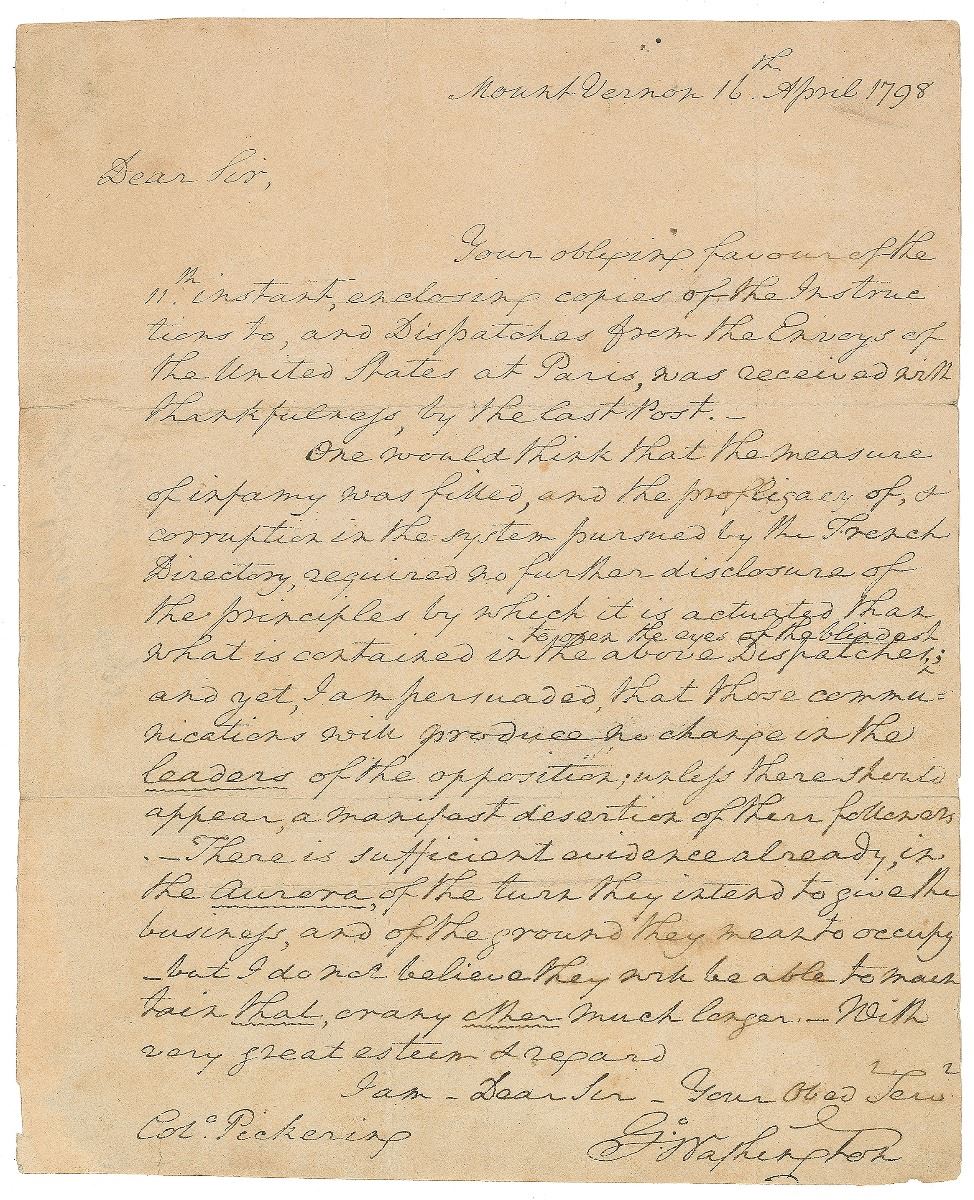 Mount Vernon 16th April 1798
Dear Sir,
Your obliging favour of the
11th instant, enclosing copies of the Instruc
tions to, and Dispatches from the Envoys of
the United States at Paris, was received with
thankfulness, by the last Post. –
One would think that the measure
of infamy was filled, and the profligacy of, &
corruption in the system pursued by the French
Directory, required no further disclosure of
the principles by which it is actuated than
to open the eyes of the blindest
what is contained in the above Dispatches;
and yet, I am persuaded, that those commu=
nications will produce no change in the
leaders of the opposition; unless there should
appear, a manifest desertion of their followers
. – There is sufficient evidence already, in
the Aurora, of the turn they intend to give the
business, and of the ground they mean to occupy
– but I do not believe they will be able to main
tain that, or any other much longer. – With
very great esteem & regard
I am – Dear Sir – Your Obed Serv
Colo. Pickering
Go: Washington